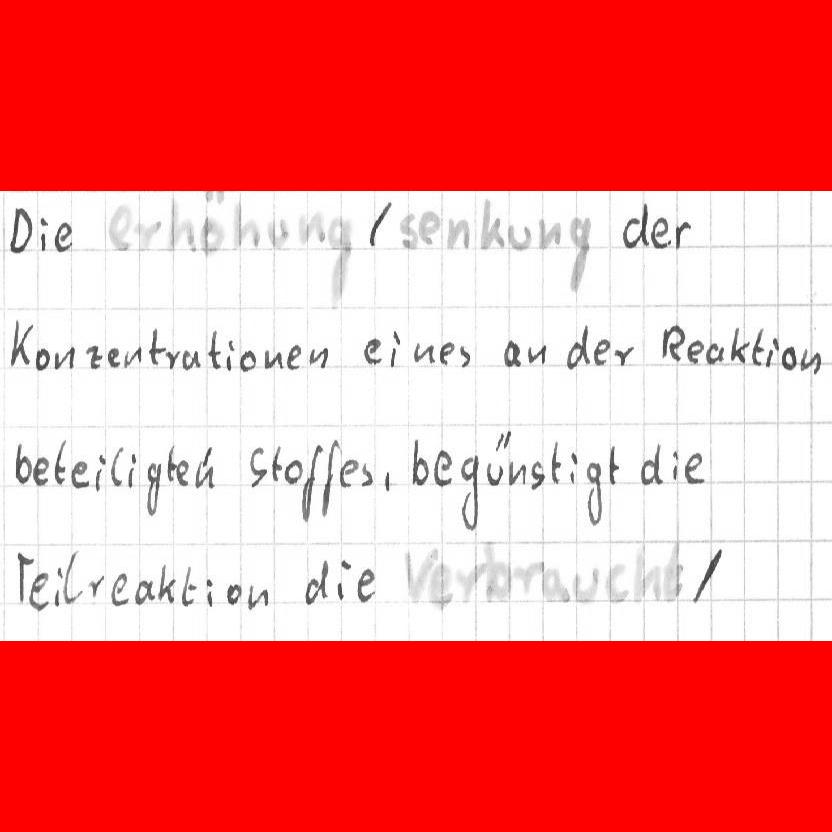 Die erhöhung / senkung der
Konzentrationen eines an der Reaktion
beteiligten Stoffes, begünstigt die
Teilreaktion die Verbraucht /